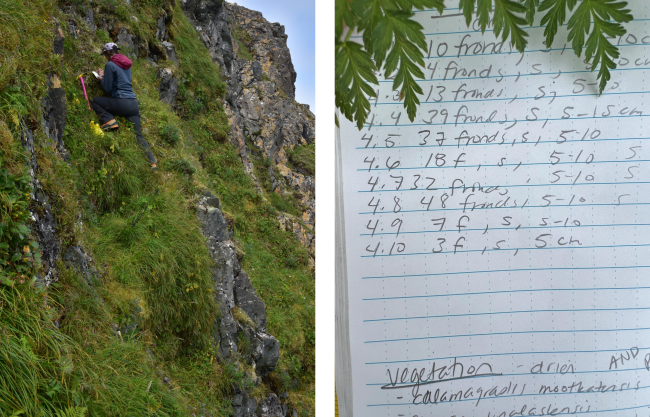 10 fronds, s,
4 fronds, s, 5-10
13 fronds, s, 5-10
4.4 29 fronds, s, 5-15cm
4.5 37 fronds, s, 5-10
4.6 18 f, s, 5-10 s
4.7 32 fronds 5-10 s
4.8 48 fronds, 5-10 s
4.9 7 f, s, 5-10
4.10 3 f, s, 5 cm
Vegetation - drier AND
- Calamagrostis nootkatensis